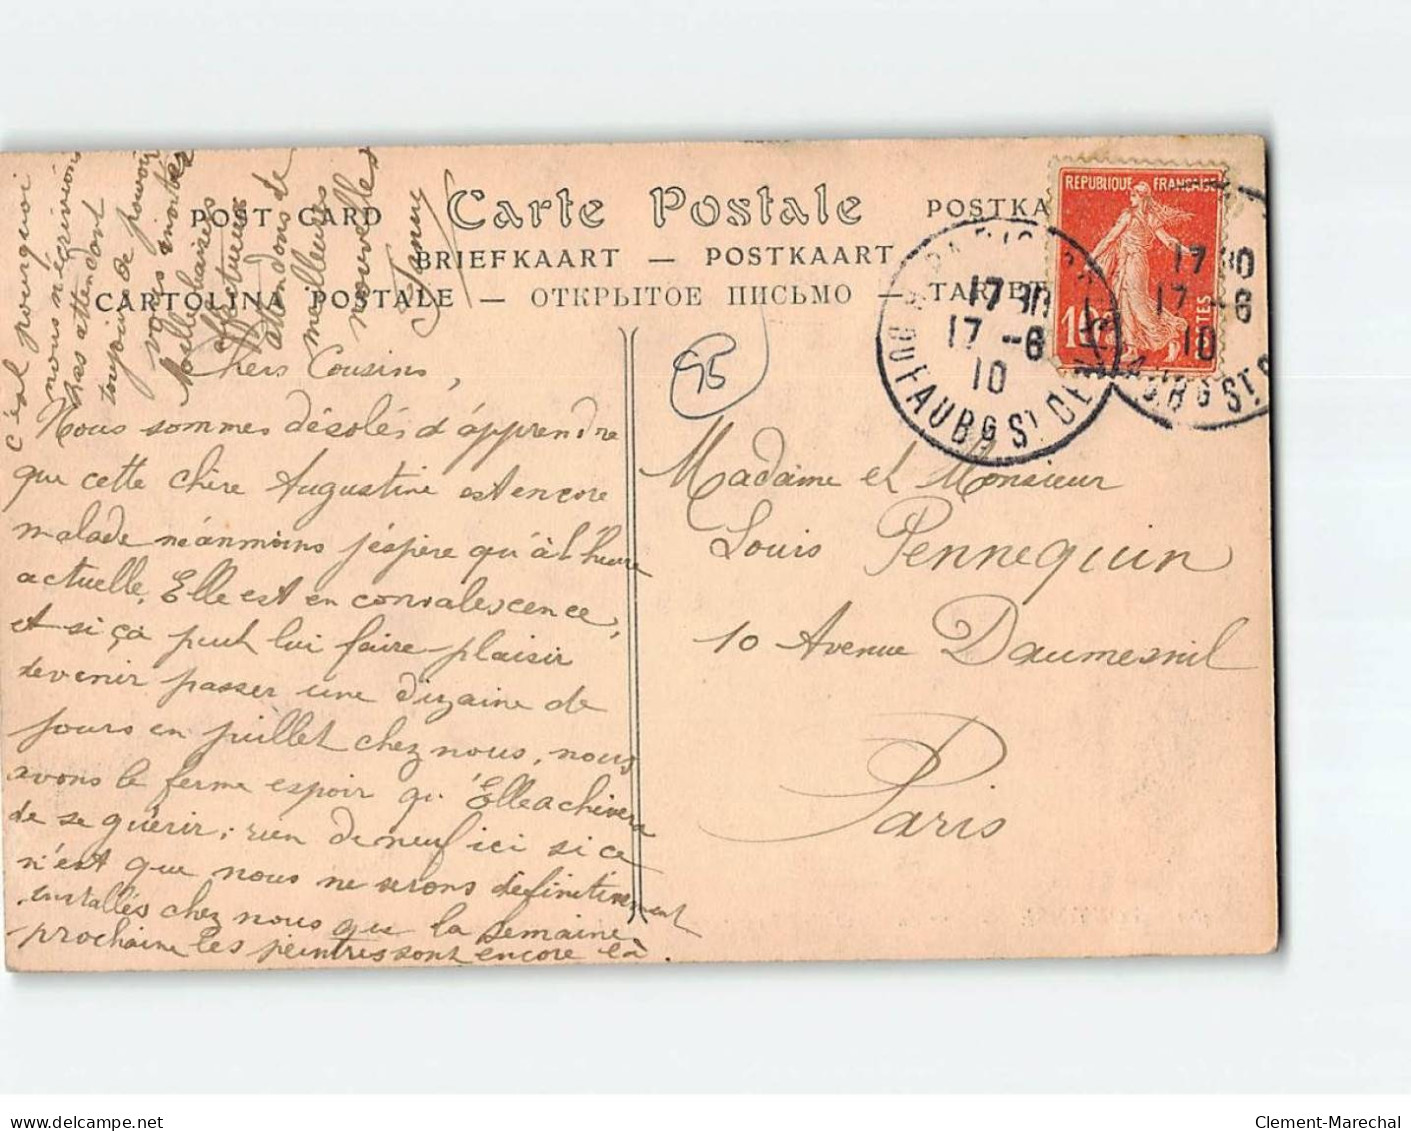 POST CARD Carte Postale POSTKA
BRIEFKAART — POSTKAART
CARTOLINA POSTALE — ОТКРЫТОЕ ПИСЬМО — TARJE
REPUBLIQUE FRANÇAISE
10 POSTES
PARIS
17 30
17 - 6
10
R. DU FAUBG ST DENIS
17 30
17 - 6
10
FAUBG ST
95
Chers Cousins,
Nous sommes désolés d'apprendre
que cette chère Augustine est encore
malade néanmoins j'espère qu'à l'heure
actuelle, Elle est en convalescence,
et si ça peut lui faire plaisir
devenir passer une dizaine de
jours en juillet chez nous, nous
avons le ferme espoir qu'Elle achèvera
de se guérir; rien de neuf ici si ce
n'est que nous ne serons définitivement
installés chez nous que la semaine
prochaine les peintres sont encore là.
c'est pourquoi
nous n'écrivions
pas attendant
toujours de pouvoir
vous inviter
Meilleurs baisers
affectueux
attendons de
meilleures
nouvelles
Fanny
Madame et Monsieur
Louis Pennequin
10 Avenue Daumesnil
Paris
Clement-Marechal
www.delcampe.net